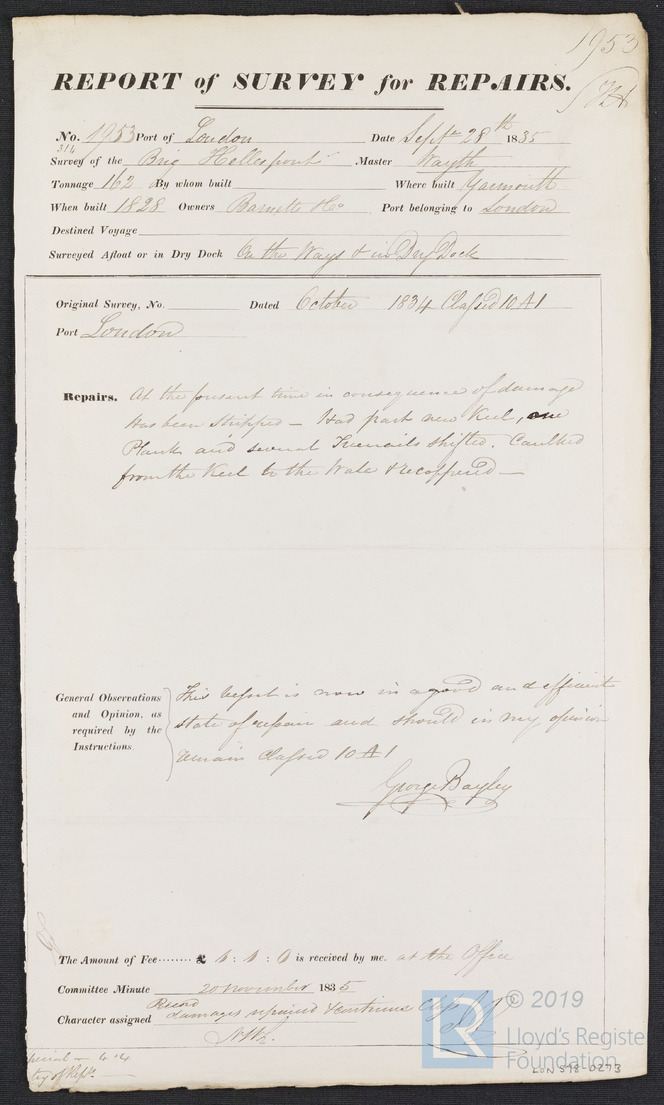 1953
REPORT of SURVEY for REPAIRS.
No. 1953 Port of London Date Septr 28th 1835
314
Survey of the Brig Hellespont Master Wayth
Tonnage 162 By whom built Where built Yarmouth
When built 1828 Owners Barnetts & Co Port belonging to London
Destined Voyage
Surveyed Afloat or in Dry Dock On the Ways & in Dry Dock
Original Survey, No. Dated October 1834 Classed 10 A 1
Port London
Repairs. At the present time in consequence of damage
has been stripped — Had part new Keel, one
Plank and several Treenails shifted. Caulked
from the Keel to the Wale & recoppered —
General Observations and Opinion, as required by the Instructions.
This vessel is now in a good and efficient
state of repair and should in my opinion
remain classed 10 A 1
George Bayley
The Amount of Fee ........ £ : : 0 is received by me. at the Office
Committee Minute 20 November 1835
Record
Character assigned damages repaired & continue
© 2019
LR Lloyd's Register
Foundation
LON 598-0273